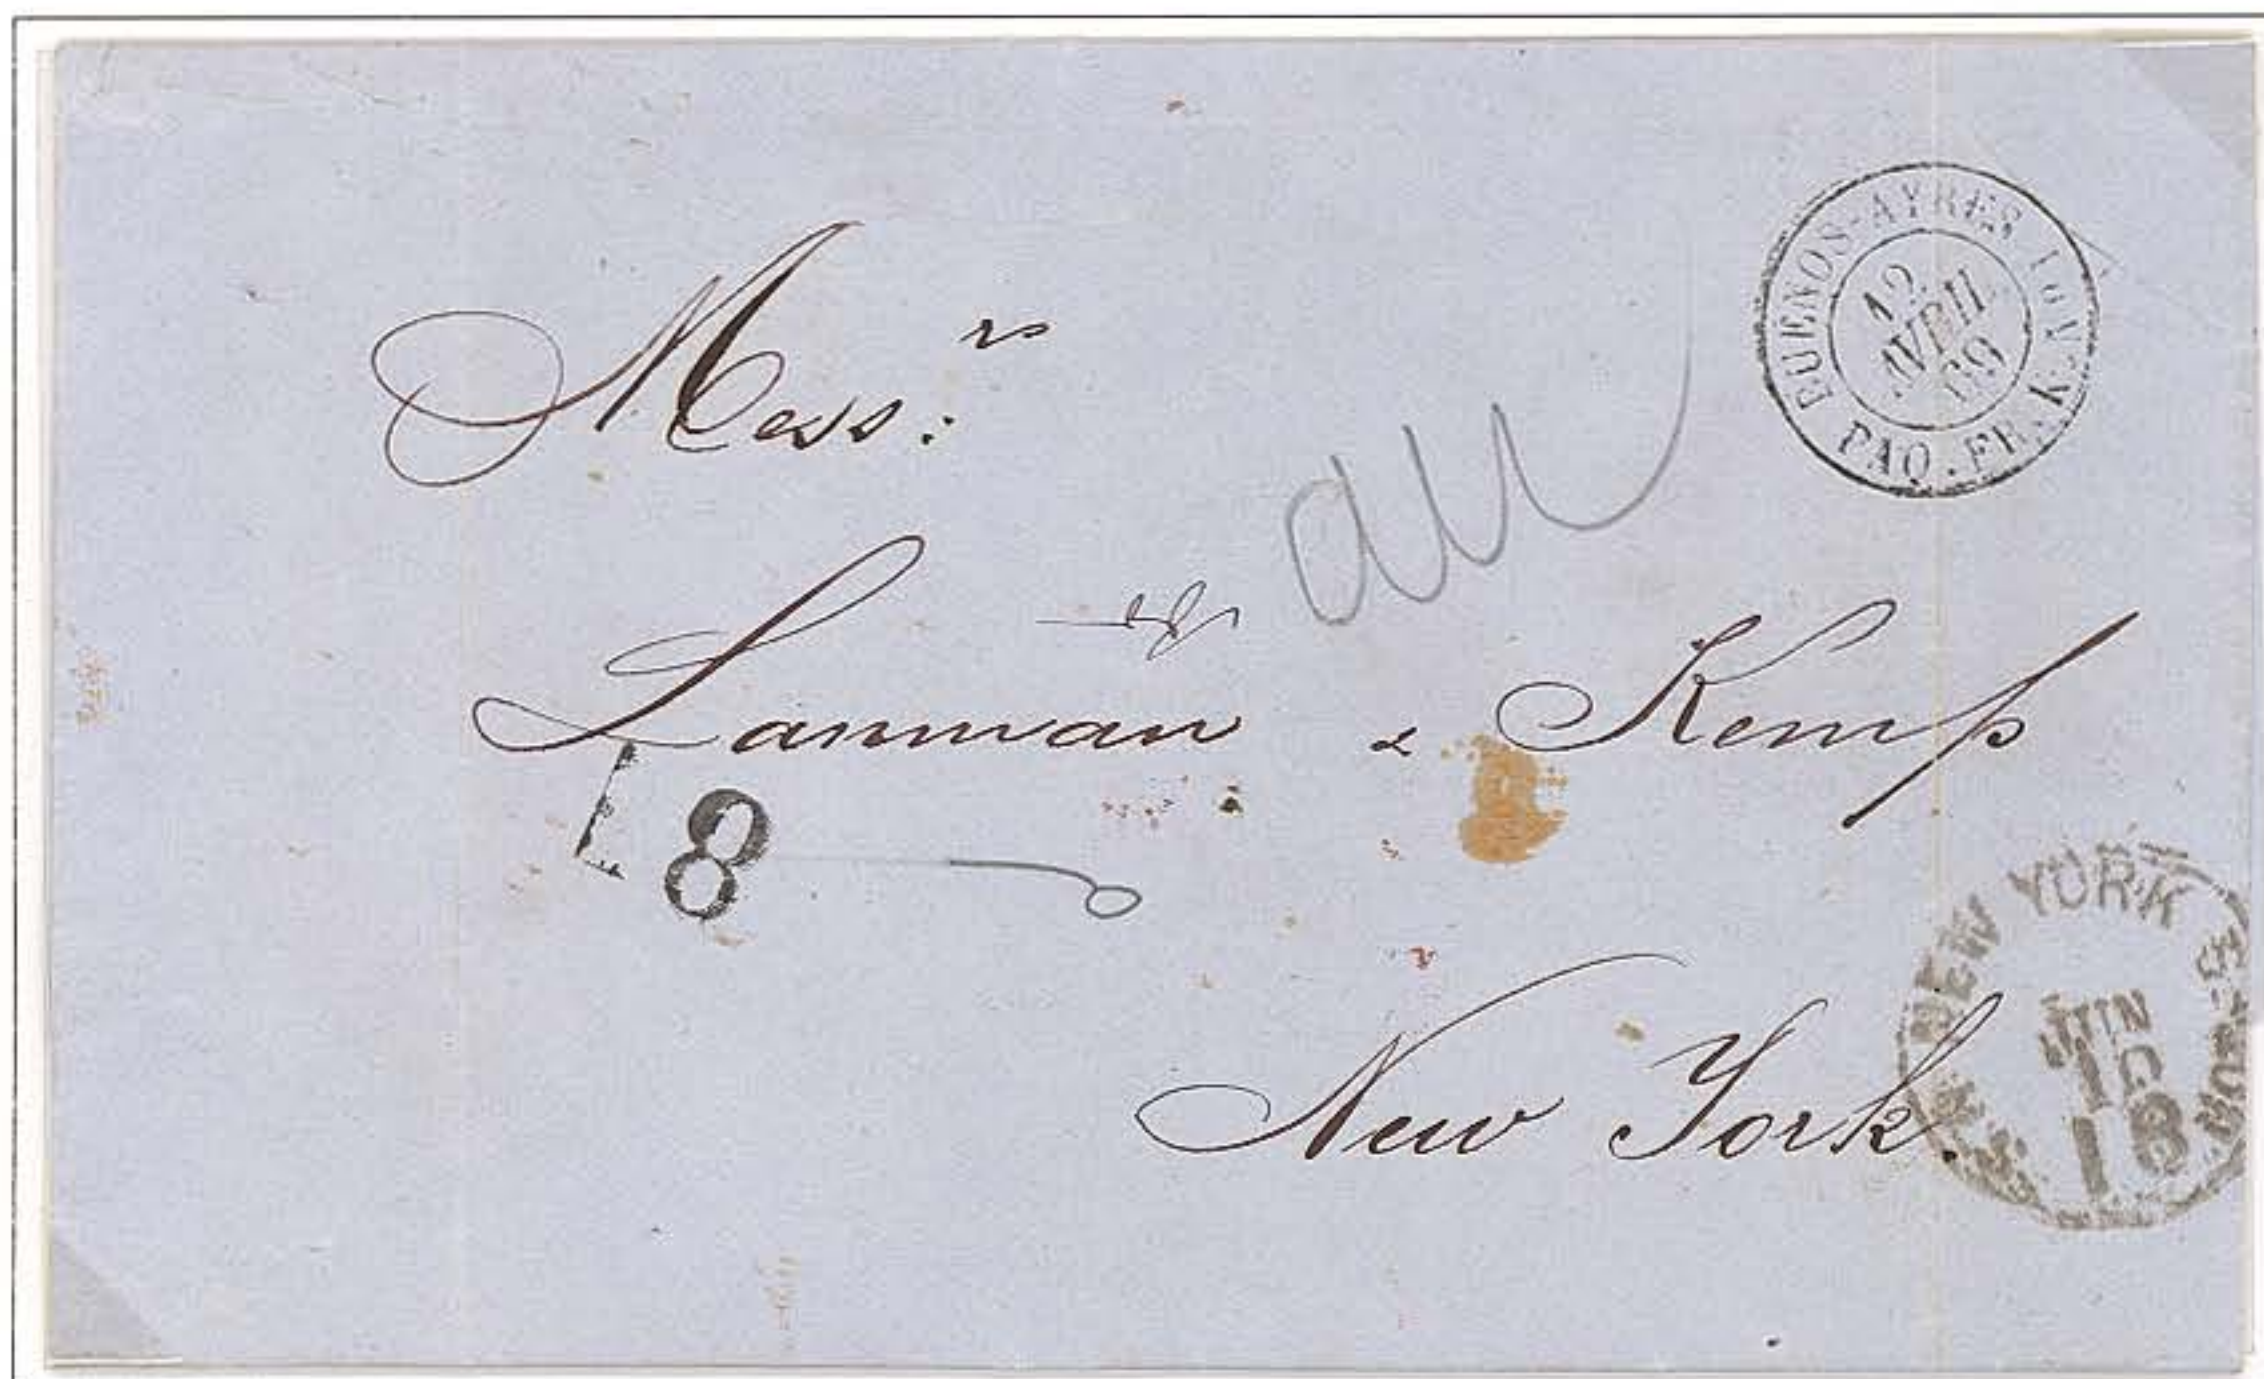 BUENOS-AYRES
12
AVRIL
69
PAQ. FR. K
Mess.rs
Lanman & Kemp
8
NEW YORK
JUN
18
New York.